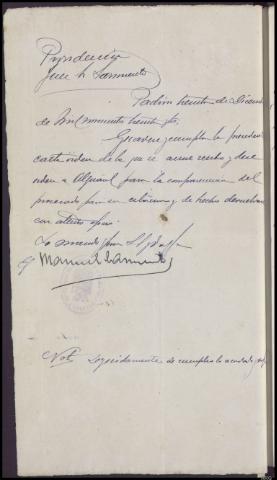 Providencia
Juez Sr Sarmiento
Padrón treinta de Diciem
de mil novecientos treinta
Guardese y cumplase la precedente
carta orden de la que se acuse recibo y dese
orden a Alguacil para la comparecencia del
procesado para su citacion y de hecho devuelvase
con atento oficio.
Lo mando y firma S. Sª doy fe
Manuel Sarmiento
Nota Seguidamente se cumple lo acordado, doy fe